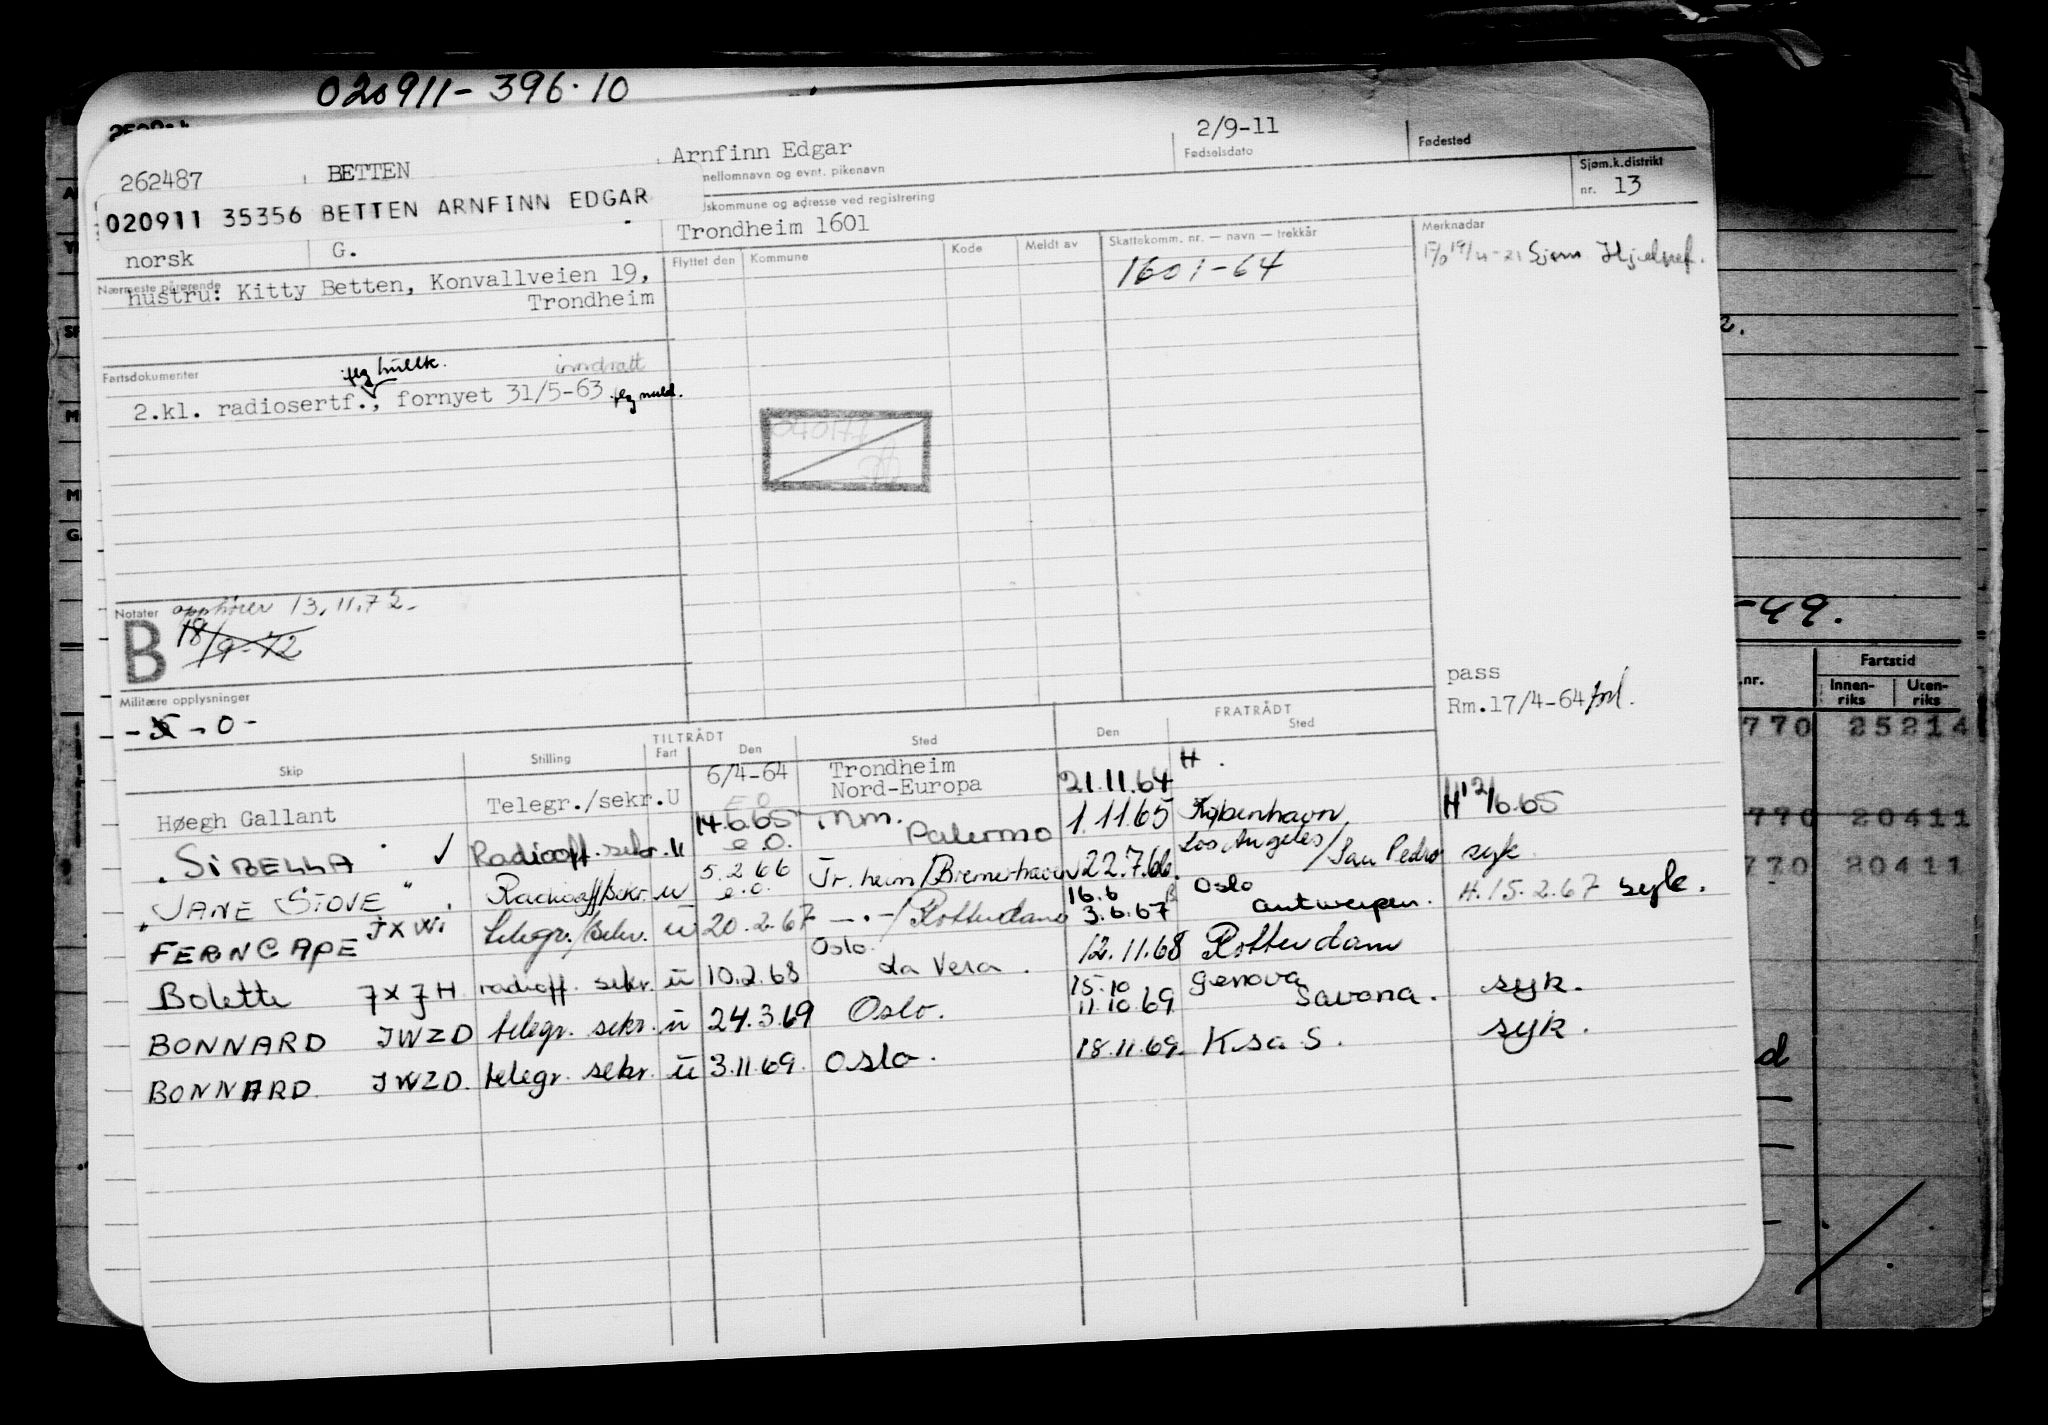 020911-396.10
262487 BETTEN Arnfinn Edgar 2/9-11
mellomnavn og evnt. pikenavn Fødselsdato Fødested
020911 35356 BETTEN ARNFINN EDGAR
dskommune og adresse ved registrering
Sjøm.k.distrikt
nr. 13
norsk G. Trondheim 1601
Flyttet den Kommune Kode Meldt av Skattekomm. nr. — navn — trekkår Merknader
Nærmeste pårørende
hustru: Kitty Betten, Konvallveien 19,
Trondheim
1601-64
Fartsdokumenter
inndratt
2.kl. radiosertf., fornyet 31/5-63
Notater opphører 13.11.72-
B 18/9-72
Militære opplysninger
- 0 -
pass
Rm.17/4-64
TILTRÅDT FRATRÅDT
Skip Stilling Fart Den Sted Den Sted
Høegh Gallant Telegr./sekr. U 6/4-64 Trondheim
Nord-Europa 21.11.64 H.
SIBELLA ✓ Radiooff. sekr. u 14.6.65 e.o. Palermo 1.11.65 København H 12/6.65
JANE STOVE Radiooff/sekr. u 5.2.66 e.o. Tr.heim/Bremerhaven 22.7.66. Los Angeles/San Pedro syk
FERNCAPE telegr./sekr. u 20.2.67 —·—/Rotterdam 16.6 3.6.67 Oslo
Antwerpen. H.15.2.67 syk.
Bolette JXJH radioff. sekr. u 10.2.68 Oslo. La Vera. 12.11.68 Rotterdam
BONNARD JWZD telegr. sekr. u 24.3.69 Oslo. 15.10 11.10.69 Genova
Savona. syk.
BONNARD. JWZD. telegr. sekr. u 3.11.69. Oslo. 18.11.69. K.sa S. syk.
-49.
.nr. Fartstid
Innen-
riks Uten-
riks
770 25214
770 20411
770 20411
d